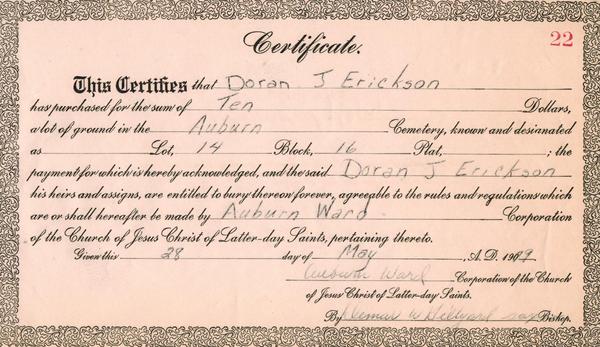 22
Certificate.
This Certifies that Doran J Erickson
has purchased for the sum of Ten Dollars,
a lot of ground in the Auburn Cemetery, known and desianated
as Lot, 14 Block, 16 Plat, ; the
payment for which is hereby acknowledged, and the said Doran J Erickson
his heirs and assigns, are entitled to bury thereon forever, agreeable to the rules and regulations which
are or shall hereafter be made by Auburn Ward Corporation
of the Church of Jesus Christ of Latter-day Saints, pertaining thereto.
Given this 28 day of May , A. D. 19
Auburn Ward Corporation of the Church
of Jesus Christ of Latter-day Saints.
By W Hillyard Bishop.